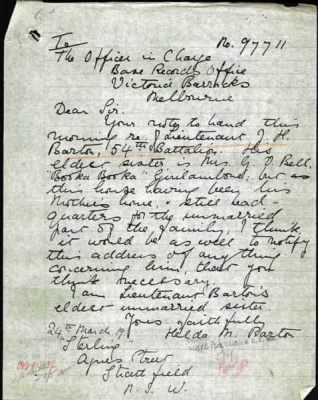 To
No. 97711
The Officer in Charge
Base Records Office
Victoria Barracks
Melbourne
Dear Sir.
Your note to hand this
morning re. Lieutenant J. H.
Barton, 54th Battalion. His
eldest sister is Mrs. G. V. Bell.
"Booka Booka" Girilambone, but as
this house having been his
Mothers home, & still head-
quarters for the unmarried
part of the family, I think
it would be as well to notify
this address of anything
concerning him, that you
think necessary.
I am Lieutenant Barton's
eldest unmarried sister.
Yours faithfully
Helda M. Barton
24th March 19
Sterling
Agnes Street
Strathfield
N.S.W.